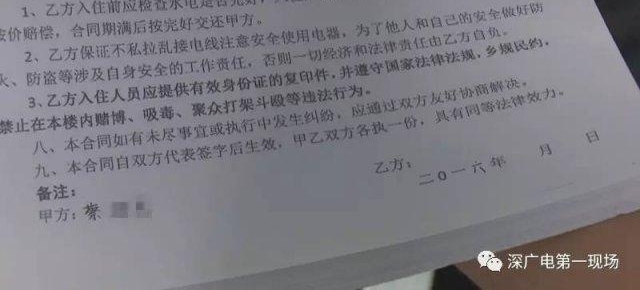 1、乙方入住前应检查水电是否完好，
按价赔偿，合同期满后按完好交还甲方。
2、乙方保证不私拉乱接电线注意安全使用电器，为了他人和自己的安全做好防
火、防盗等涉及自身安全的工作责任，否则一切经济和法律责任由乙方自负。
3、乙方入住人员应提供有效身份证的复印件，并遵守国家法律法规，乡规民约，
禁止在本楼内赌博、吸毒、聚众打架斗殴等违法行为。
八、本合同如有未尽事宜或执行中发生纠纷，应通过双方友好协商解决。
九、本合同自双方代表签字后生效，甲乙双方各执一份，具有同等法律效力。
备注：
甲方： 乙方：
二0一六年 月 日
深广电第一现场